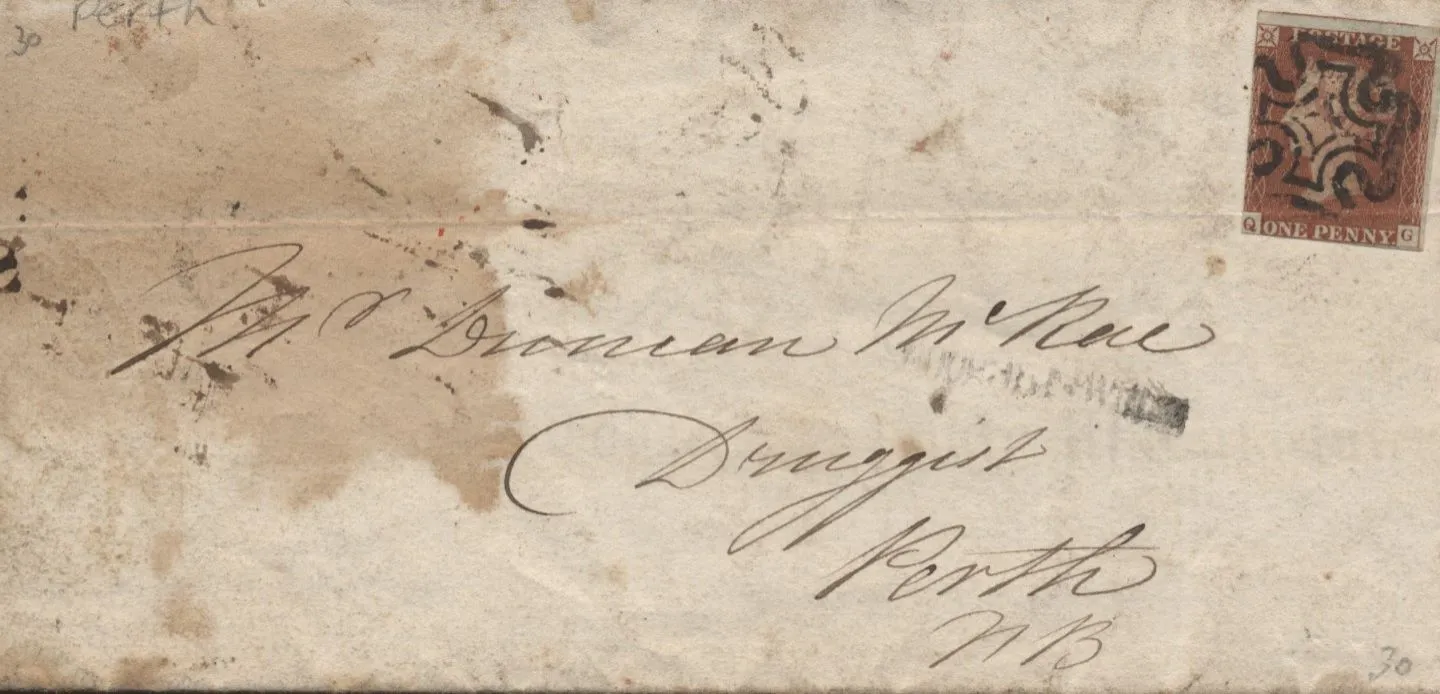 Perth
30
POSTAGE
Q ONE PENNY. G
Mr Duncan McRae
Druggist
Perth
NB
30